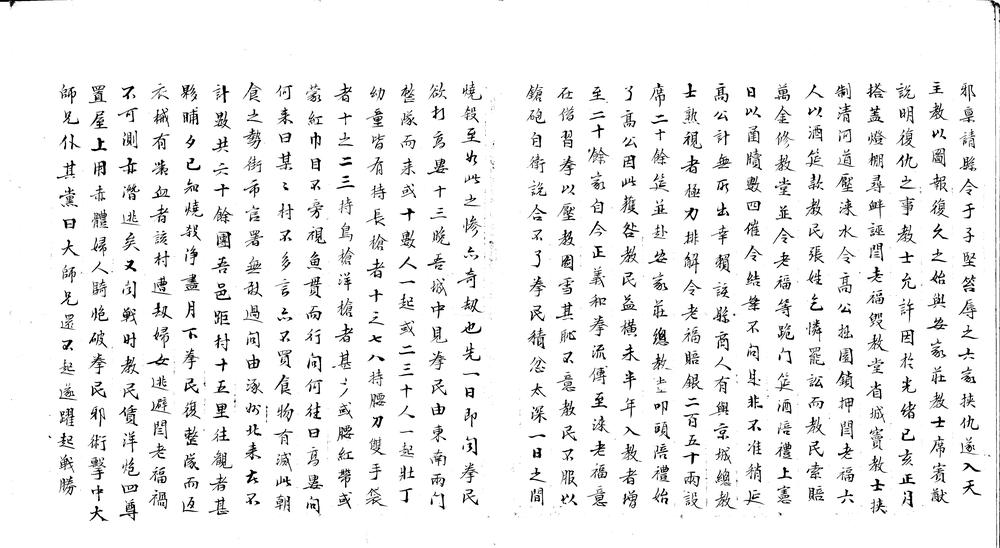 邪臬請縣令于子堅笞辱之六家挾仇遂入天
主教以圖報復久之始與安家莊教士席賓猷
說明復仇之事教士允許因於光緒己亥正月
搭蓋燈棚尋衅誣閻老福燬教堂省城竇教士挾
制清河道壓淶水令高公拙園鎖押閻老福六
人以酒筵款教民張姓乞憐罷訟而教民索賠
萬金修教堂並令老福等跪门筵酒陪禮上憲
日以函牘數四催令結案不问是非不准稍延
高公計無所出幸賴該縣商人有與京城總教
士熟視者極力排解令老福賠銀二百五十兩設
席二十餘筵並赴安家莊總教士叩頭陪禮始
了高公因此獲咎教民益橫未半年入教者增
至二十餘家自今正義和拳流傳至淶老福意
在借習拳以壓教圖雪其恥不意教民不服以
鎗砲自衛說合不了拳民積忿太深一日之間
燒殺至如此之慘亦奇劫也先一日即闻拳民
欲打高婁十三晚吾城中見拳民由東南兩门
整隊而来或十數人一起或二三十人一起壯丁
幼童皆有持長槍者十之七八持腰刀雙手袋
者十之二三持鳥槍洋槍者甚少或腰紅帶或
蒙紅巾目不旁視魚貫而行问何往曰高婁问
何来曰某〻村不多言亦不買食物有滅此朝
食之勢街市官署無敢過问由涿州北来去不
計數共六十餘團吾邑距村十五里往觀者甚
夥晡夕已知燒殺净盡月下拳民復整隊而返
衣械有染血者該村遭劫婦女逃避閻老福禍
不可測亦潛逃矣又闻戰时教民賃洋炮四尊
置屋上用赤體婦人騎炮破拳民邪術擊中大
師兄仆其黨曰大師兄還不起遂躍起戰勝